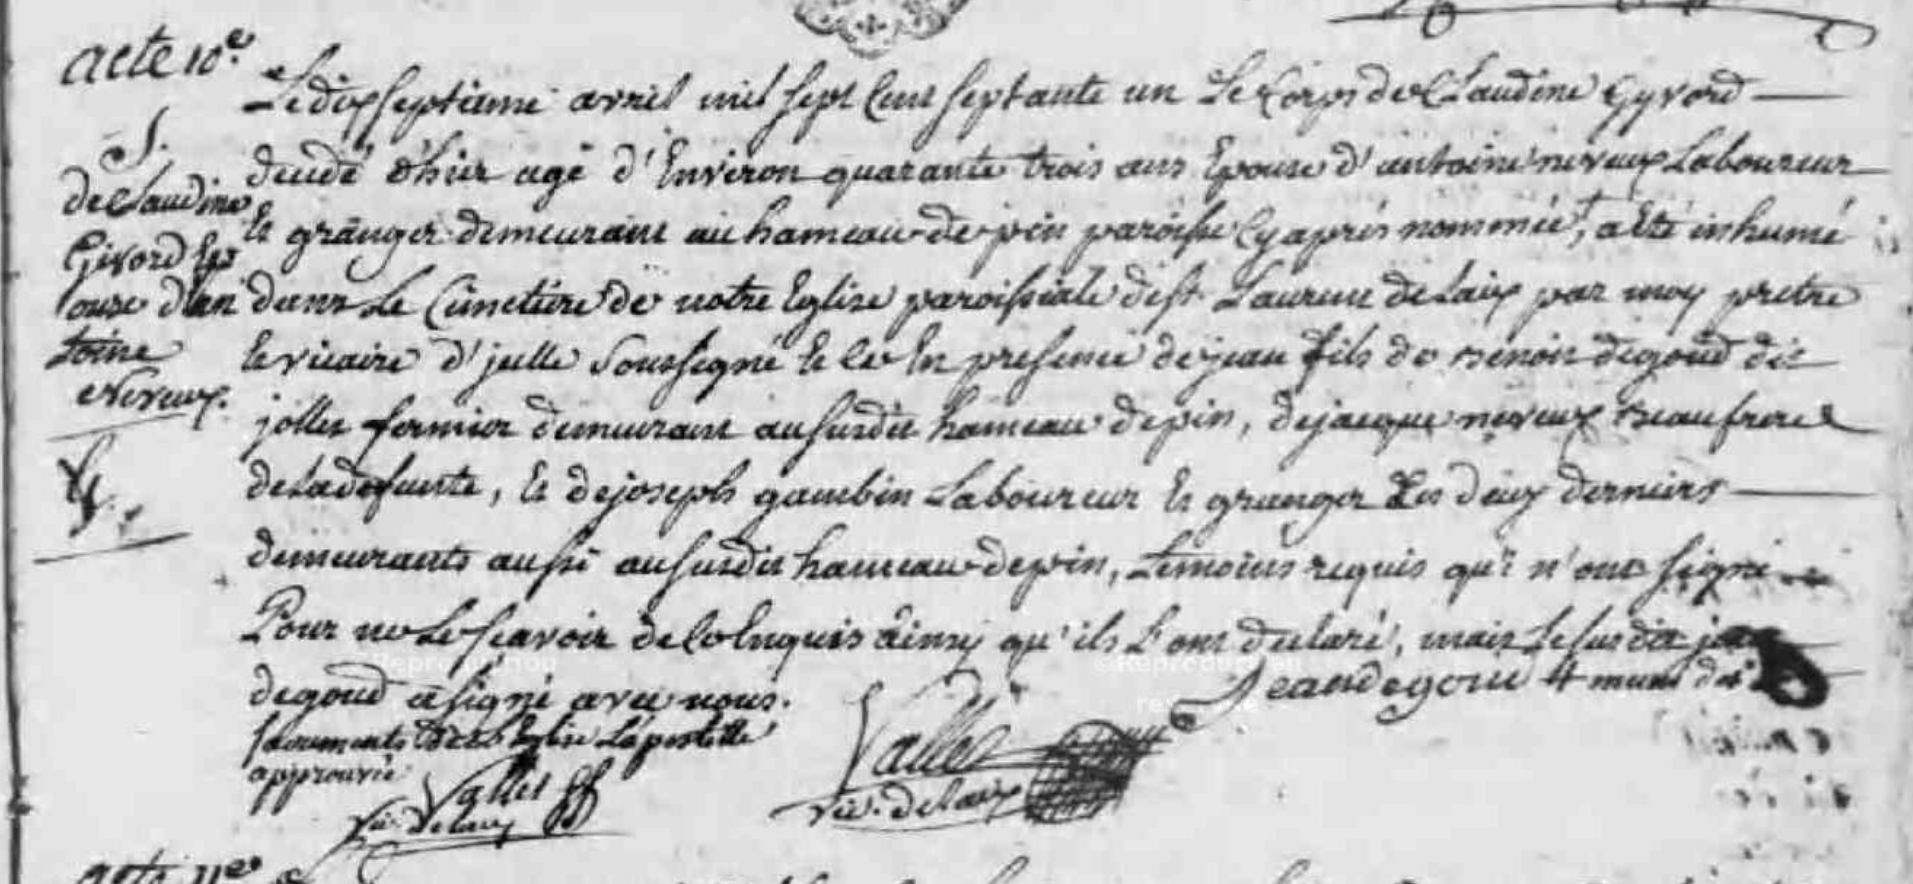 acte 10e.
S.
de Claudine
Givord ép
ouse d'an
toine
Neveux.
Le dix septieme avril mil sept cent septante un Le Corps de Claudine Gyvord
decedé d'hier agé d'Environ quarante trois ans Epouse d'antoine neveux Laboureur
et granger demeurant au hameau de pin paroisse Cy aprés nommée, a été inhumé
dans Le Cimetiere de notre Eglise paroissiale de st Laurent de Laix par moy pretre
et vicaire d'jelle Soussigné et ce En presence de jean fils de Benoit degoud dit
jollet fermier demeurant au susdit hameau de pin, de jacque neveux Beaufrere
de la defunte, et de joseph gambin Laboureur et granger Les deux derniers
demeurants aussi au susdit hameau de pin, temoins requis qui n'ont signé
Pour ne Le scavoir de ce Enquis ainsy qu'ils L'ont declaré, mais Le susdit
degoud a signé avec nous.
Jean degoud
munie des
sacuments de l'Eglise L'apostille
approuvée
Vallet
vic. de Laix
Vallet
vic. de Laix
acte 11e